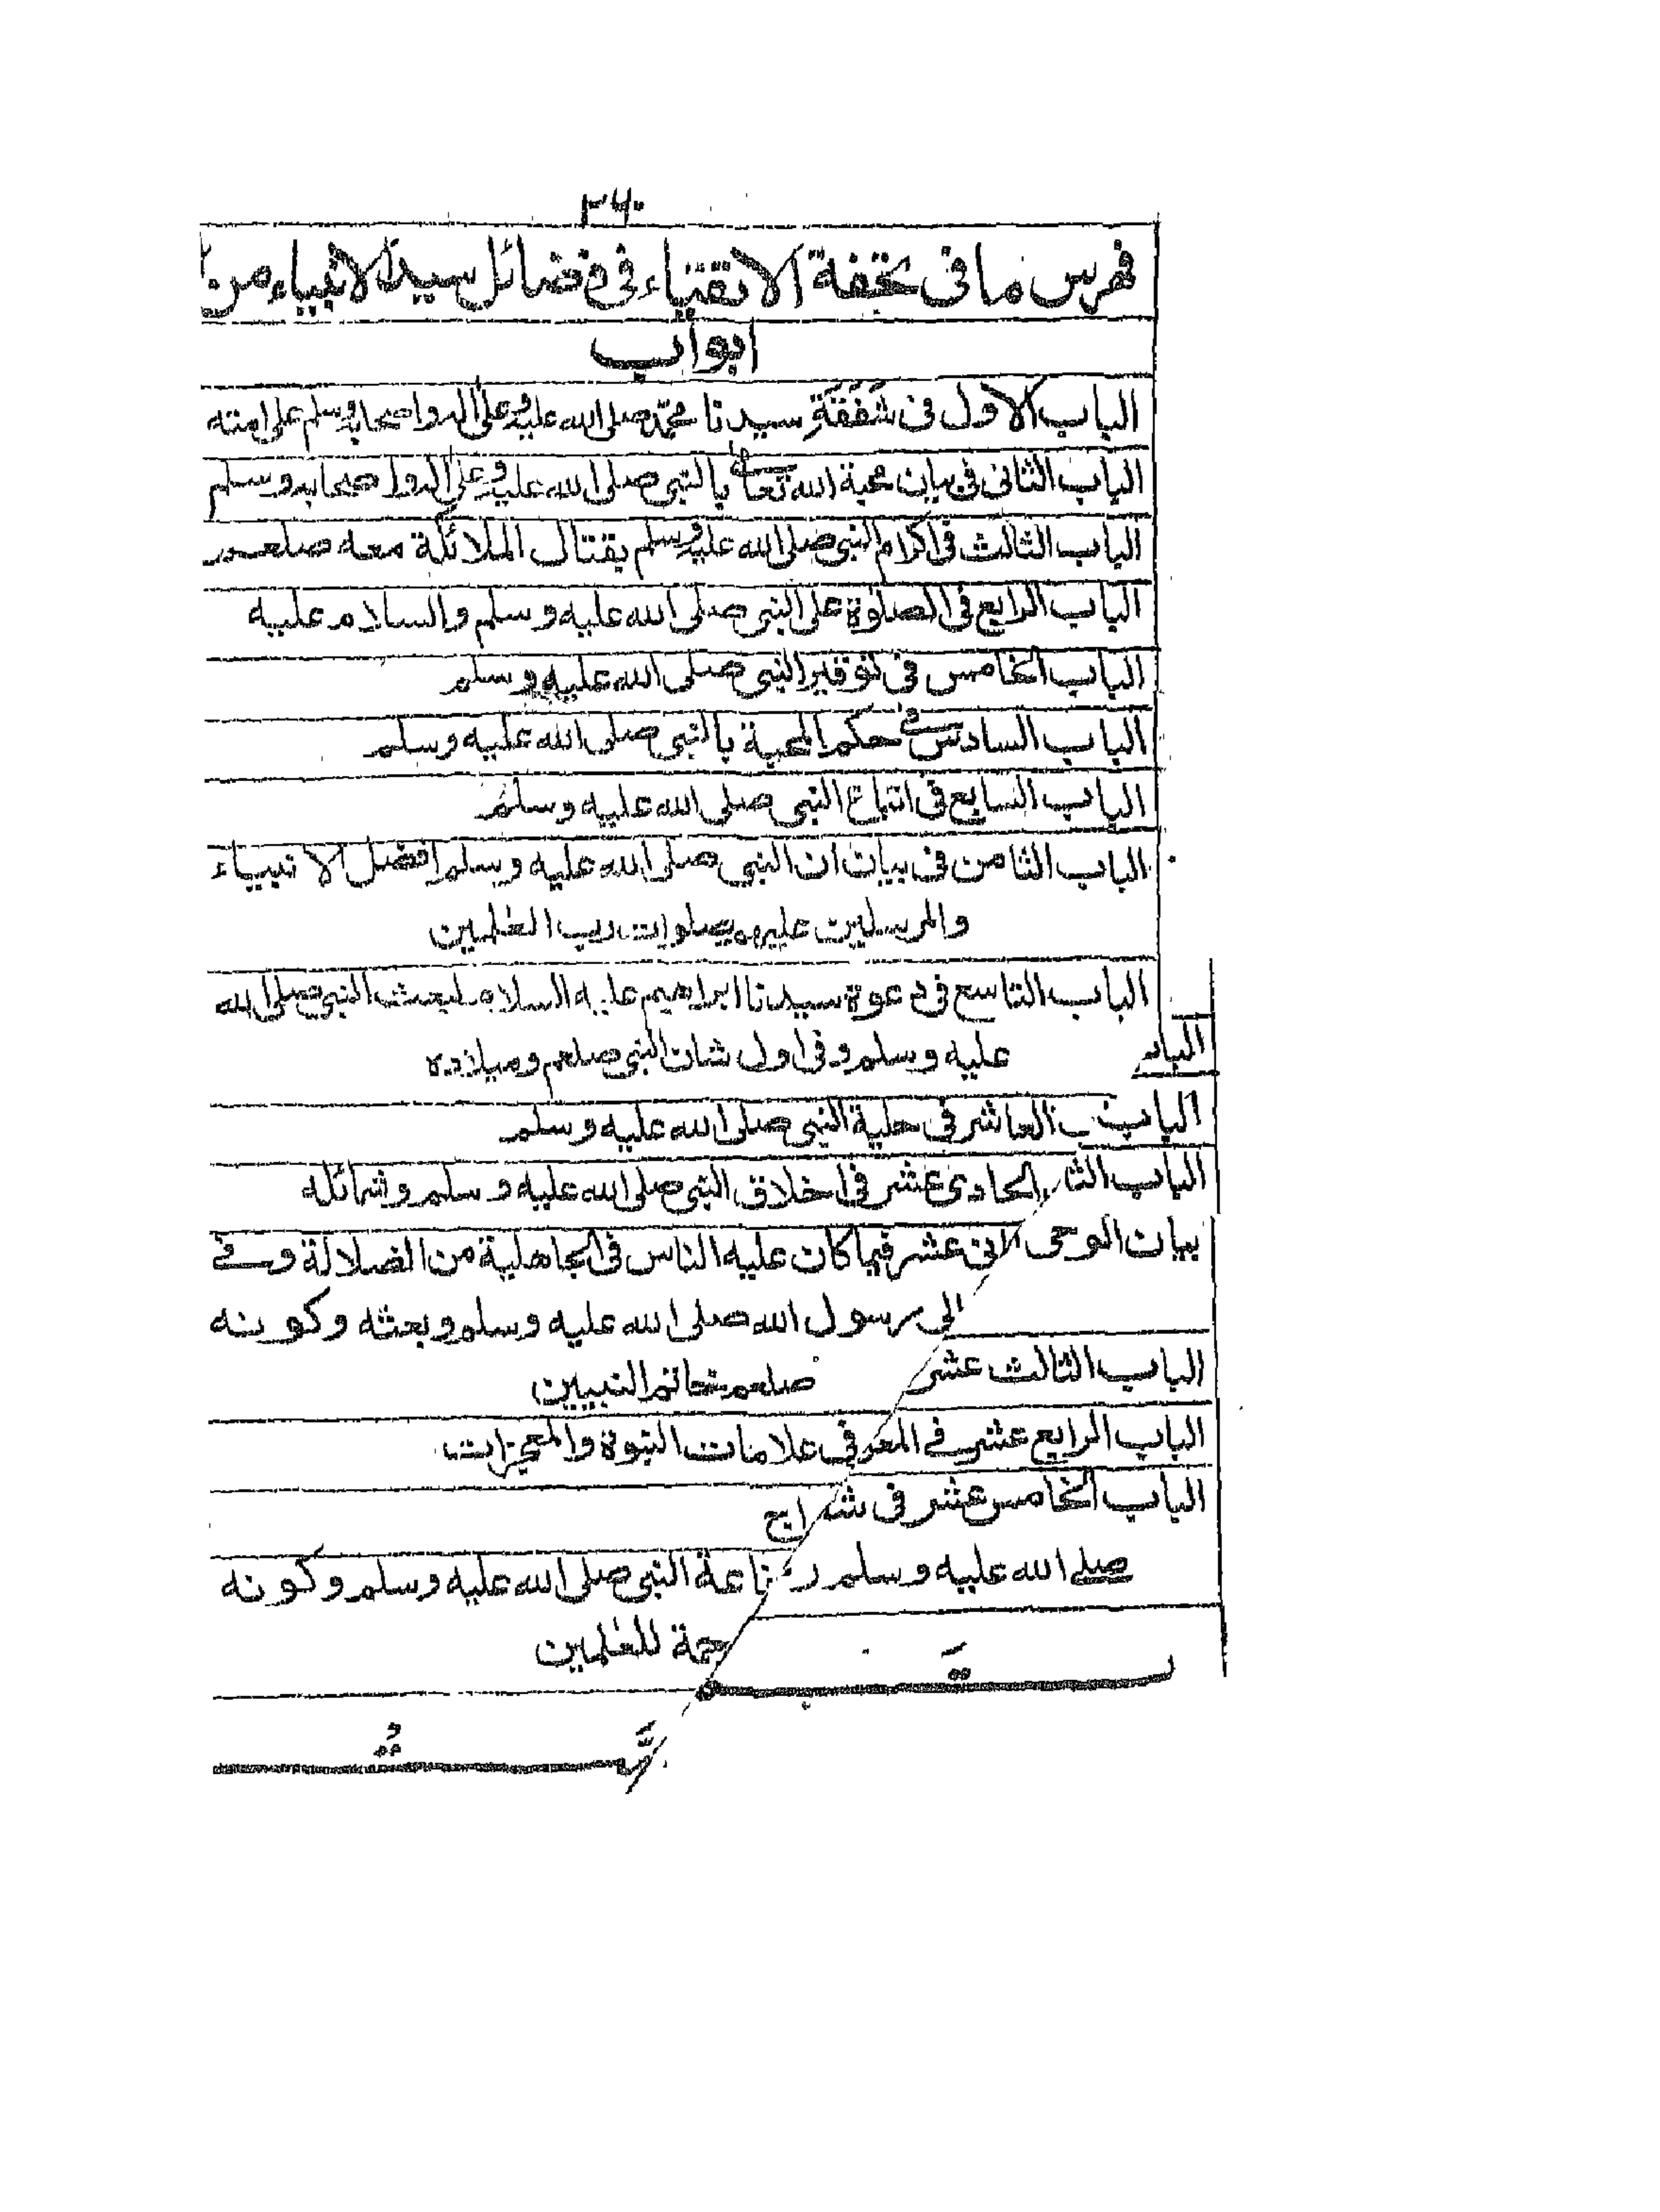 ٢٦٠
فهرس ما فی تحفة الاتقیاء فی فضائل سید الانبیاء من
ابواب
الباب الاول فی شَفَقَةِ سیدنا محمّد صلی الله علیه وعلی اله واصحابه وسلم علی امته
الباب الثانی فی بیان محبة الله تعالی بالنبی صلی الله علیه وعلی اله واصحابه وسلم
الباب الثالث فی اکرام النبی صلی الله علیه وسلم بقتال الملائکة معه صلعم
الباب الرابع فی الصلوٰة علی النبی صلی الله علیه وسلم والسلام علیه
الباب الخامس فی توقیر النبی صلی الله علیه وسلم
الباب السادس فی حکم المحبة بالنبی صلی الله علیه وسلم
الباب السابع فی اتباع النبی صلی الله علیه وسلم
الباب الثامن فی بیان ان النبی صلی الله علیه وسلم افضل الانبیاء
والمرسلین علیهم صلوات رب العٰلمین
الباب التاسع فی دعوة سیدنا ابراهیم علیه السلام لبعث النبی صلی الله
علیه وسلم وفی اول شان النبی صلعم ومیلاده
الباب
الباب العاشر فی حلیة النبی صلی الله علیه وسلم
الباب الثا الحادی عشر فی اخلاق النبی صلی الله علیه وسلم وشمائله
بیان الوحی انی عشر فیما کان علیه الناس فی الجاهلیة من الضلالة وفی
الی رسول الله صلی الله علیه وسلم وبعثه وکونه
الباب الثالث عشر صلعم خاتم النبیین
الباب الرابع عشر فی المعر فی علامات النبوة والمعجزات
الباب الخامس عشر فی شـ اج
صلی الله علیه وسلم ر ناعة النبی صلی الله علیه وسلم وکونه
حمة للعٰلمین